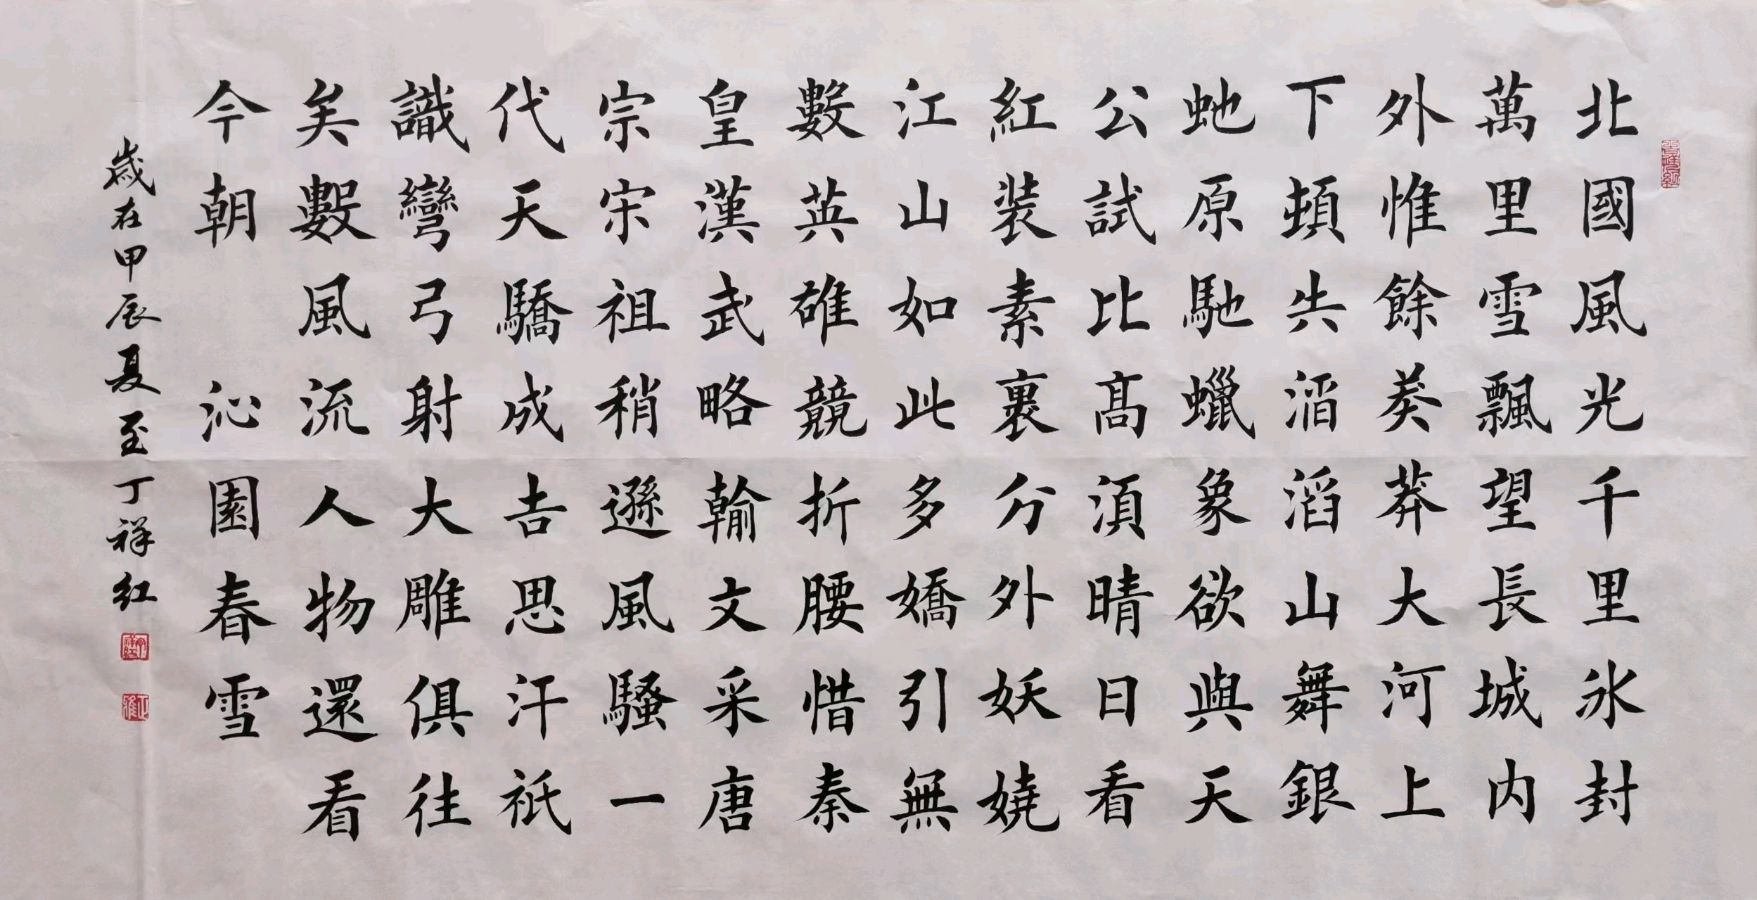 北國風光千里氷封
萬里雪飄望長城内
外惟餘莽莽大河上
下頓失滔滔山舞銀
虵原馳蠟象欲與天
公試比髙湏晴日看
紅裝素裹分外妖嬈
江山如此多嬌引無
數英雄競折腰惜秦
皇漢武略輸文采唐
宗宋祖稍遜風騷一
代天驕成吉思汗祇
識彎弓射大雕俱往
矣數風流人物還看
今朝 沁園春雪
歲在甲辰夏至丁祥紅